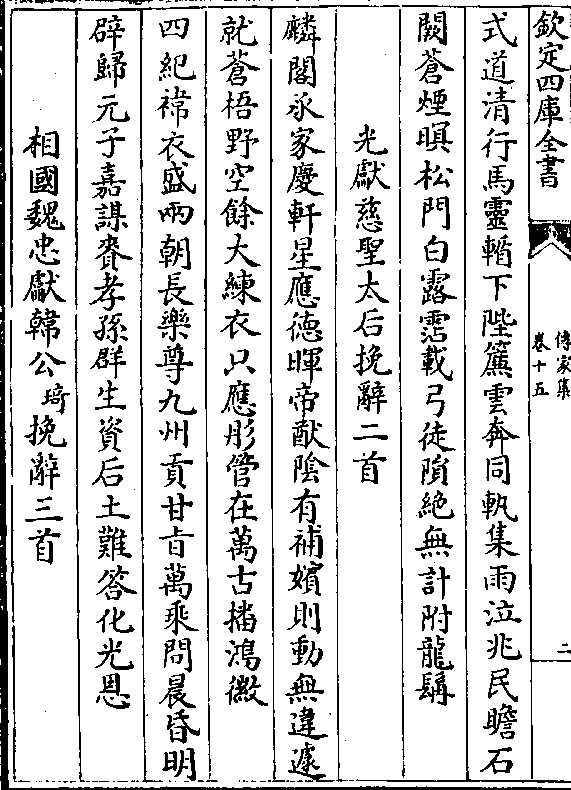 欽定四庫全書
傳家集
卷十五
二
式道清行馬靈輴下陛簾雲奔同軌集雨泣兆民瞻石
闕蒼煙暝松門白露霑載弓徒隕絶無計附龍髯
光獻慈聖太后挽辭二首
麟閣承家慶軒星應德暉帝猷陰有補嬪則動無違遽
就蒼梧野空餘大練衣只應彤管在萬古播鴻徽
四紀褘衣盛兩朝長樂尊九州貢甘旨萬乘問晨昏明
辟歸元子嘉謀賚孝孫群生資后土難答化光恩
相國魏忠獻韓公琦挽辭三首